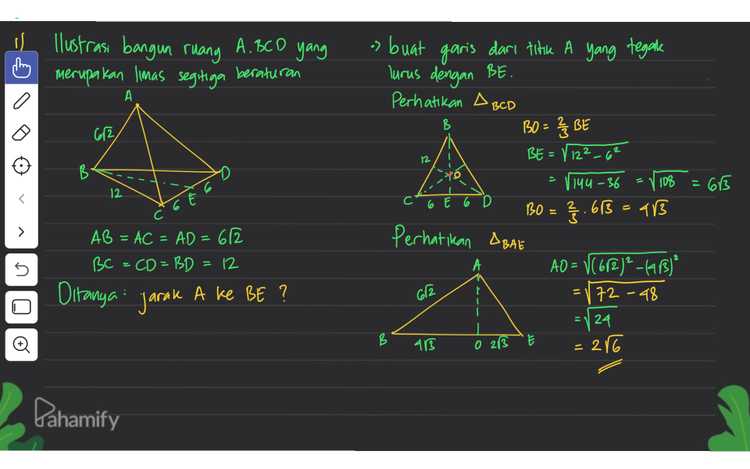 1)
Ilustrasi bangun ruang A.BCD yang
merupakan limas segitiga beraturan
A
6√2
B
D
12
E
6
6
C
AB = AC = AD = 6√2
BC = CD = BD = 12
Ditanya : jarak A ke BE ?
-> buat garis dari titik A yang tegak
lurus dengan BE.
Perhatikan △ BCD
B
12
O
C 6 E 6 D
BO = 2/3 BE
BE = √12² - 6²
= √144 - 36 = √108 = 6√3
BO = 2/3 . 6√3 = 4√3
Perhatikan △ BAE
A
6√2
B 4√3 O 2√3 E
AO = √(6√2)² - (4√3)²
= √72 - 48
= √24
= 2√6
Pahamify